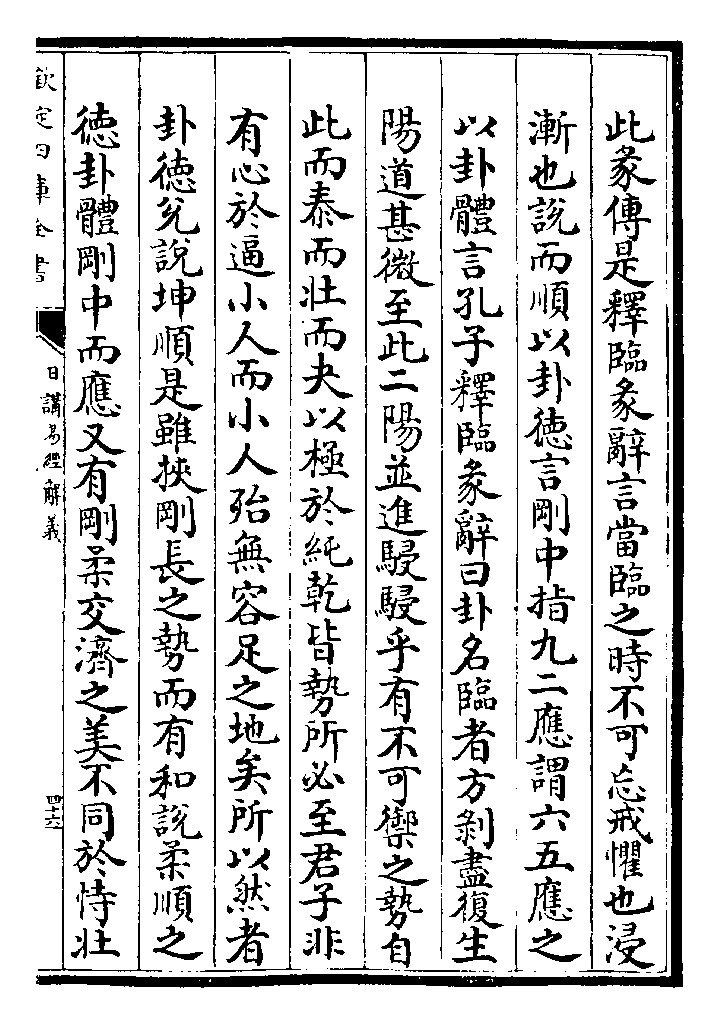 此彖傳是釋臨彖辭言當臨之時不可忘戒懼也浸
漸也說而順以卦徳言剛中指九二應謂六五應之
以卦體言孔子釋臨彖辭曰卦名臨者方剝盡復生
陽道甚微至此二陽並進駸駸乎有不可禦之勢自
此而泰而壯而夬以極於純乾皆勢所必至君子非
有心於逼小人而小人殆無容足之地矣所以然者
卦徳兊說坤順是雖挾剛長之勢而有和說柔順之
徳卦體剛中而應又有剛柔交濟之美不同於恃壯
欽定四庫全書
日講易經解義
四十六